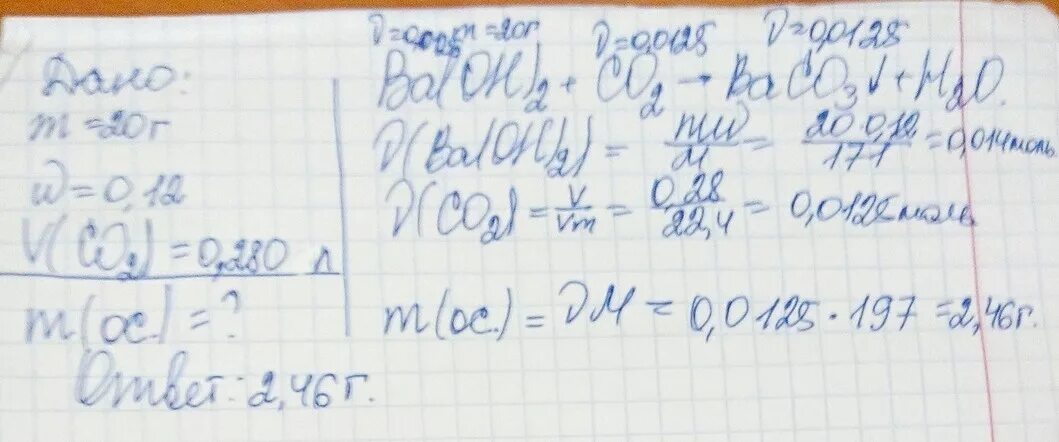 Дано:
m = 20 г
ω = 0,12
V(CO₂) = 0,280 л
m(ос.) = ?
m = 20г ν = 0,0125 ν = 0,0125
Ba(OH)₂ + CO₂ → BaCO₃↓ + H₂O.
ν(Ba(OH)₂) = mω/M = 20·0,12/171 = 0,014моль
ν(CO₂) = V/Vm = 0,28/22,4 = 0,0125моль
m(ос.) = νM = 0,0125·197 = 2,46г.
Ответ: 2,46г.